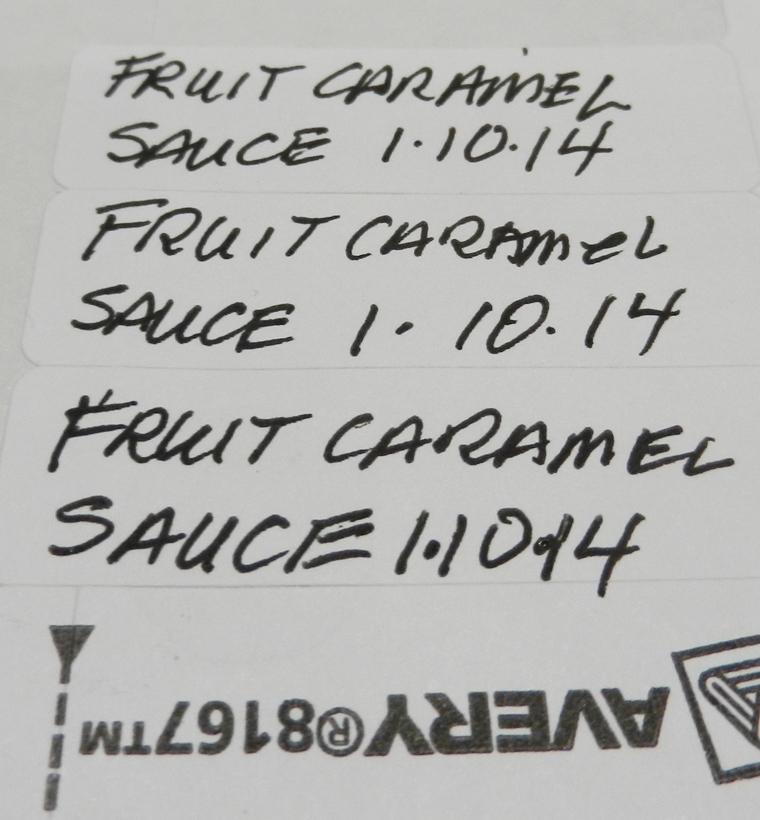 FRUIT CARAMEL
SAUCE 1.10.14
FRUIT CARAmeL
SAUCE 1. 10.14
FRUIT CARAMEL
SAUCE 1.10.14
AVERY®8167™